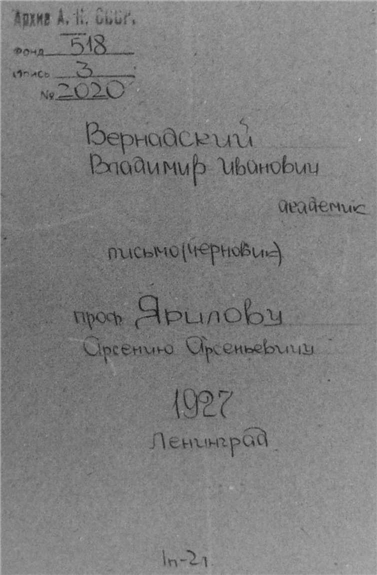 Архив А. Н. СССР.
Фонд 518
Опись 3
№ 2020
Вернадский
Владимир Иванович
академик
письмо (черновик)
проф Ярилову
Арсению Арсеньевичу
1927
Ленинград
1п-2л